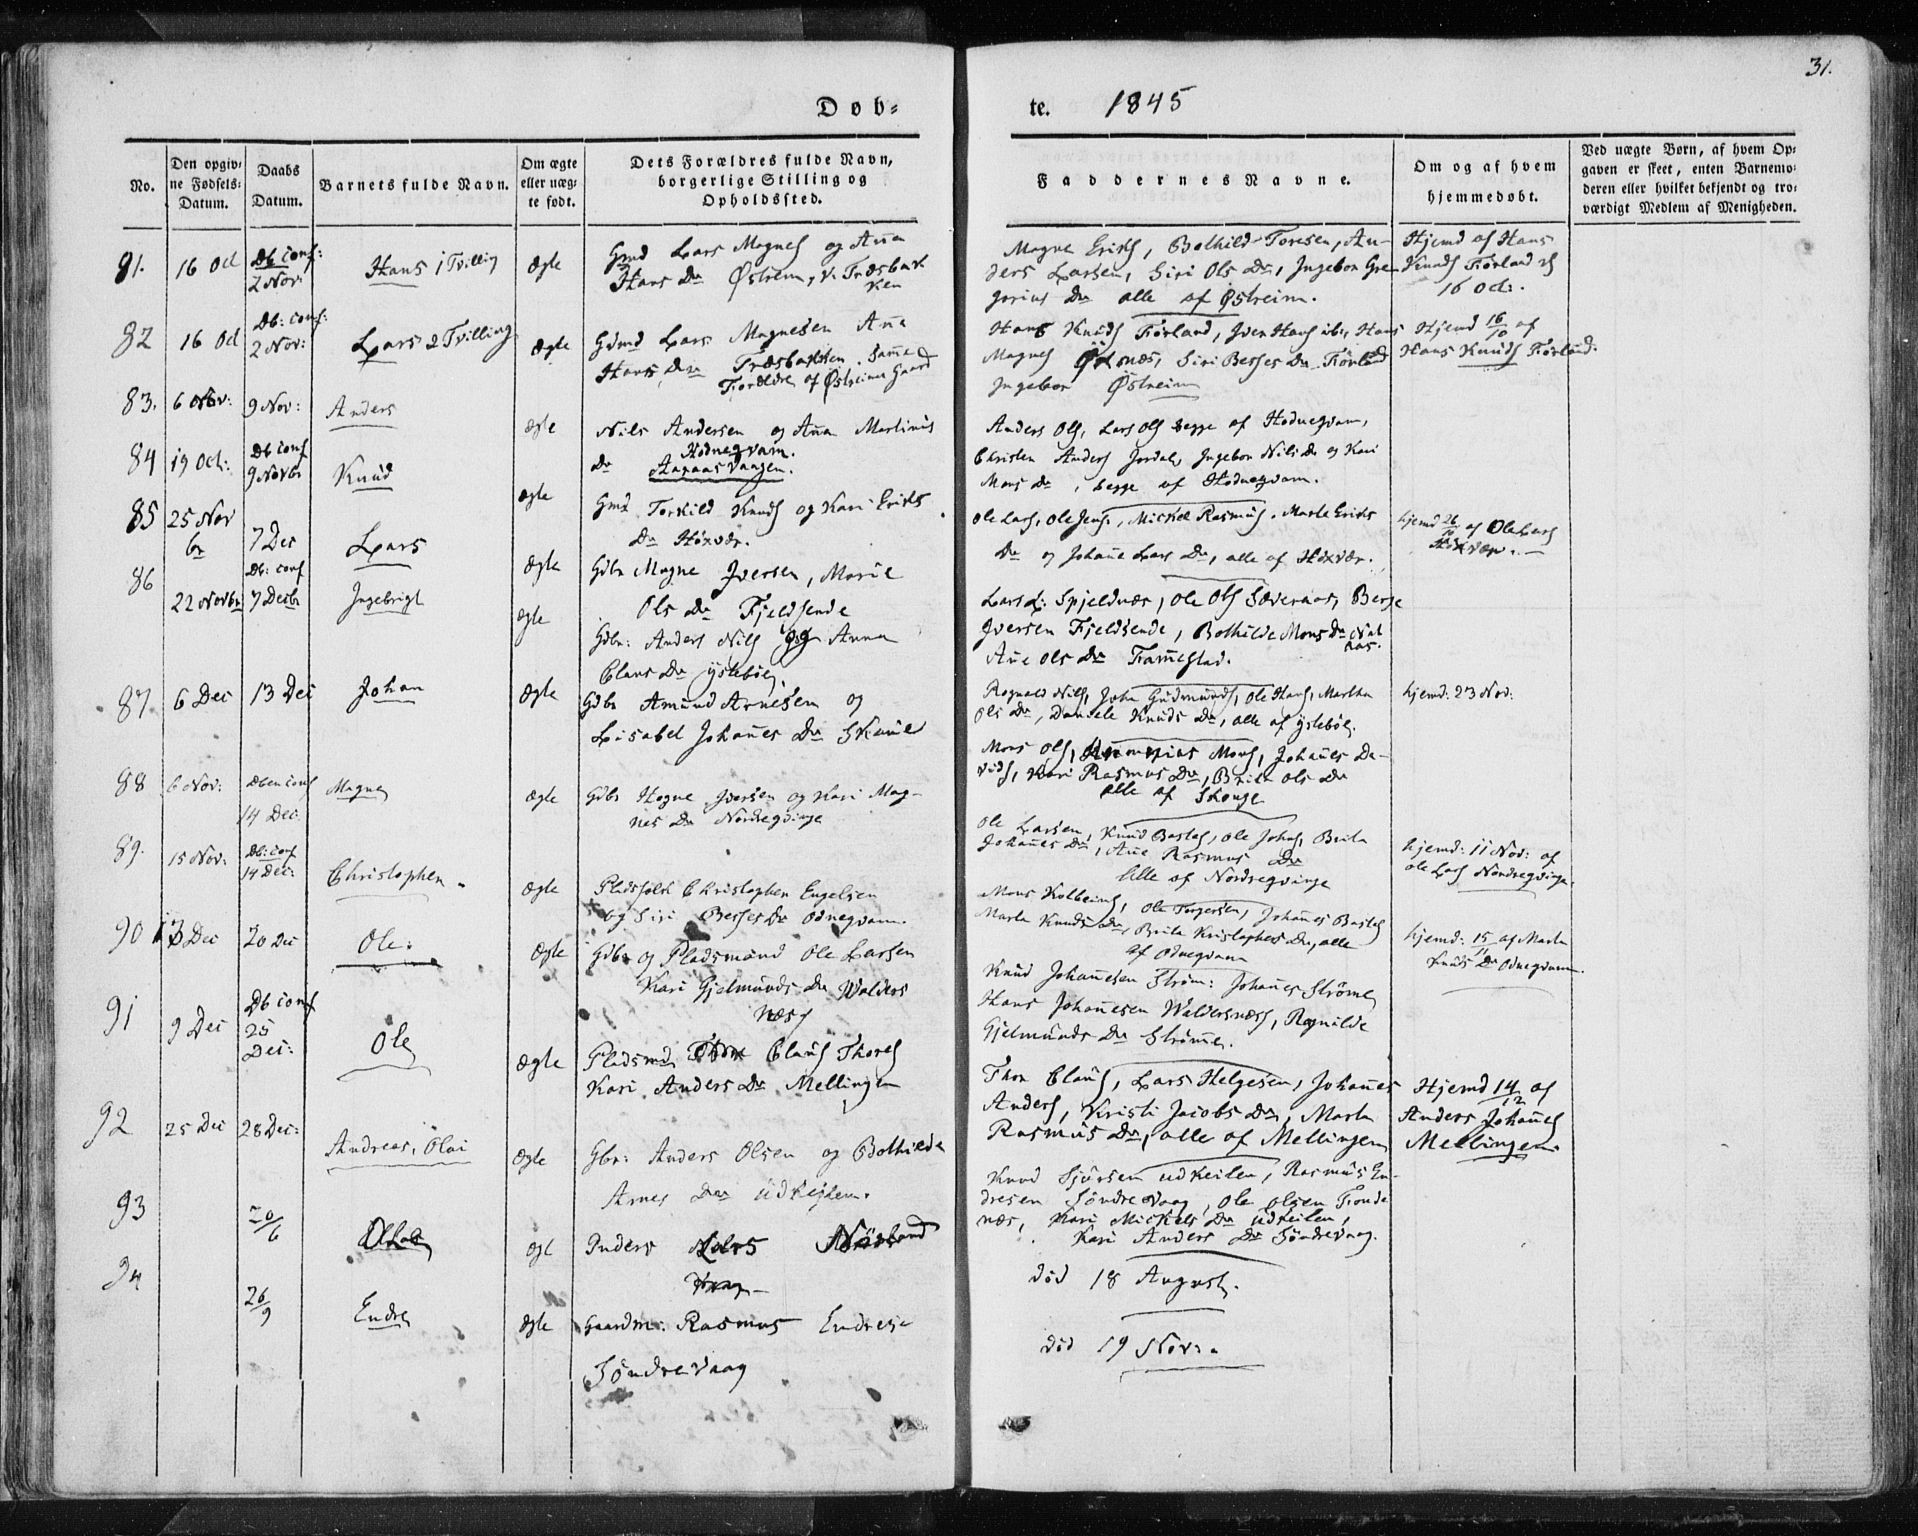 31.
Døb-
te. 1845
No.
Den opgiv-
ne Fødsels-
Datum.
Daabs
Datum.
Barnets fulde Navn.
Om ægte
eller uæg-
te født.
Dets Forældres fulde Navn,
borgerlige Stilling og
Opholdssted.
Faddernes Navne.
Om og af hvem
hjemmedøbt.
Ved uægte Børn, af hvem Op-
gaven er skeet, enten Barnemo-
deren eller hvilket bekjendt og tro-
værdigt Medlem af Menigheden.
81. 16 Oct Db conf: 2 Nov Hans 1 Tvilling ægte
Gmd Lars Magnes og Aña
Hans Dr Østreim, v. Træsbak
ken
Magne Eriks, Bothild Toresen, An-
ders Larsen, Siri Ols Dr, Ingebor Gre-
gorius Dr alle af Østreim.
Hjemd af Hans
Knuds Førland
16 Oct.
82 16 Oct Db: conf: 2 Nov: Lars 2 Tvilling ægte
Gdmd Lars Magnesen Aña
Hans Dr Træsbakken samme
Forældre af Østreim Gaard
Hans Knuds Førland, Iver Hans ib:, Hans
Magnes Østnæs, Siri Berges Dr Førland
Ingebor Østreim
Hjemd 16/10 af
Hans Knuds Førland:
83. 6 Nov: 9 Nov: Anders ægte
Nils Andersen og Aña Martinus
Dr Hodnegvam.
Aaraasvaagen.
Anders Ols, Lars Ols begge af Hodnegvam,
Christen Anders Jordal, Ingebor Nils Dr og Kari
Mons Dr, begge af Hodnegvam.
84 19 Oct: Db conf 9 Novbr Knud ægte
Gmd Torkild Knuds og Kari Eriks
Dr Høxvær.
Ole Lars, Ole Jens, Mickel Rasmus. Marte Eriks
Dr og Johañe Lars Dr, alle af Høxvær.
hjemd 26/10 af Ole Lars
Høxvær.
85 25 Nov
br 7 Dec Lars ægte
Gdbr Magne Iversen, Marie
Ols Dr Fjeldsende
Lars L: Spjeldnæs, Ole Ols Sæveraas, Berge
Iversen Fjeldsende, Bothilde Mons Dr
Añe Ols Dr Frameftad.
86 22 Novbr Db: conf 7 Decbr Ingebrigt ægte
Gdbr: Anders Nils og Anna
Claus Dr Ystebøe.
Rognald Nils, John Gudmunds, Ole Hans, Martha
Ols Dr, Daniele Knuds Dr, alle af Ystebøe.
hjemd: 23 Nov:
87. 6 Dec 13 Dec Johan ægte
Gdbr Amund Arnesen og
Lisabet Johañes Dr Skauge
Mons Ols, Mons, Johañes Da-
vids, Kari Rasmus Dr, Brite Ols Dr
alle af Skouge
88 6 Nov: Dben conf 14 Dec. Magne ægte
Gdbr Hogne Iversen og Kari Mag-
nes Dr Nordregvinge
Ole Larsen, Knud Bastes, Ole Johas, Brita
Johañes Dr, Añe Rasmus Dr
alle af Nordregvinge
hjemd: 11 Nov: af
Ole Lars Nordregvinge.
89. 15 Nov: Db: conf 14 Dec: Christopher. ægte
Pladsfolk Christopher Engelsen
og Siri Berges Dr Odnegvam.
Mons Kolbeins, Ole Torgersen, Johañes Bastes
Marta Knuds Dr, Brita Kristophes Dr, alle
af Odnegvam
hjemd: 15/11 af Marta
Knuds Dr Odnegvam.
90 13 Dec 20 Dec Ole: ægte
Gdbr og Pladsmand Ole Larsen
Kari Gjelmunds Dr Walders
næs
Knud Johañesen Strøm: Johañes Strøme
Hans Johañesen Waldersnæs, Rognilde
Gjelmunds Dr Strøme.
91 9 Dec Db conf
25
Dec: Ole ægte
Pladsmd Claus Thores
Kari Anders Dr Mellingen
Thor Claus, Lars Helgesen, Johañes
Anders, Kristi Jacobs Dr, Marta
Rasmus Dr, alle af Mellingen
Hjemd 14/12 af
Anders Johañes
Mellingen.
92 25 Dec 28 Dec: Andreas, Olai ægte
Gbr: Anders Olsen og Bothilde
Arnes Dr Udkeilen.
Knud Sjursen udkeilen, Rasmus En-
dresen Søndrevaag, Ole Olsen Tronde
næs, Kari Mickels Dr udkeilen,
Kari Anders Dr Søndrevaag.
93 20/6 ægt
Anders Lars
død 18 August.
94 26/9 Endre ægte
Gaardm: Rasmus Endrese
Søndrevaag
død 19 Nov: